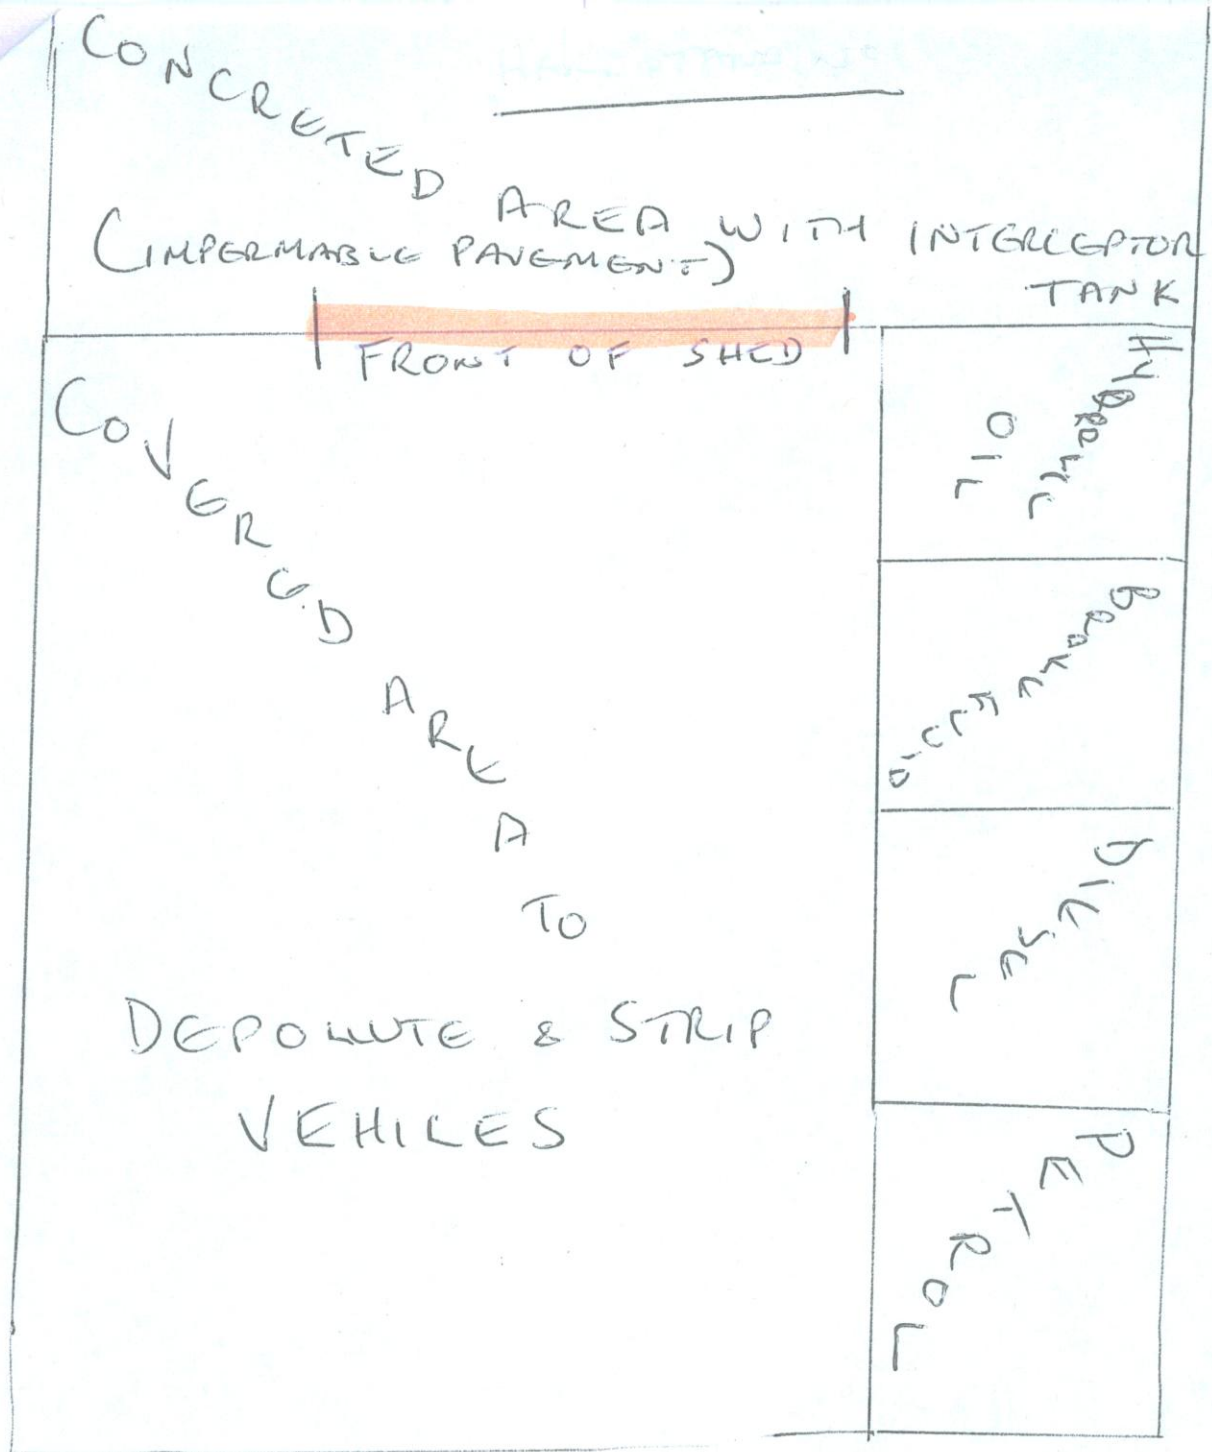 CONCRETED AREA WITH INTERCEPTOR TANK
(IMPERMABLE PAVEMENT)
FRONT OF SHED
COVERED AREA TO
DEPOLLUTE & STRIP
VEHILES
OIL
BRAKE FLUID
DIESEL
PETROL